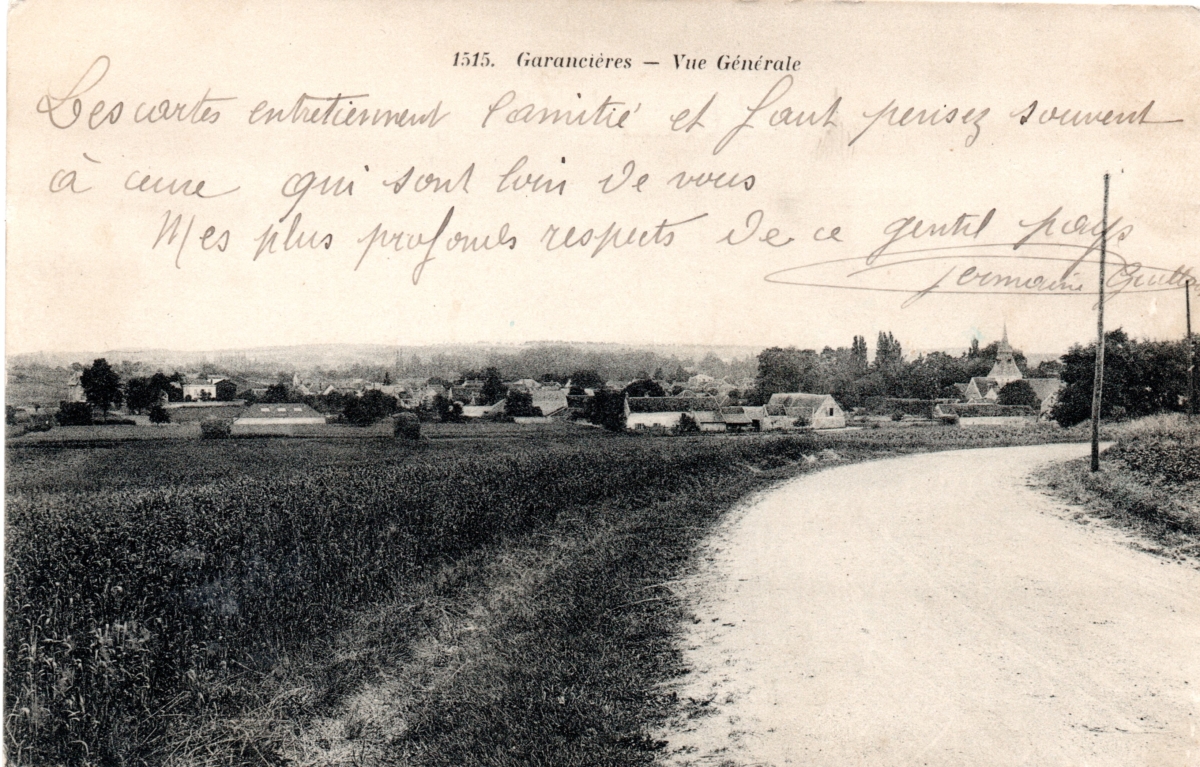 1515. Garancières — Vue Générale
Les cartes entretiennent l'amitié et font pensez souvent
à ceux qui sont loin de vous
Mes plus profonds respects de ce gentil pays
Germaine